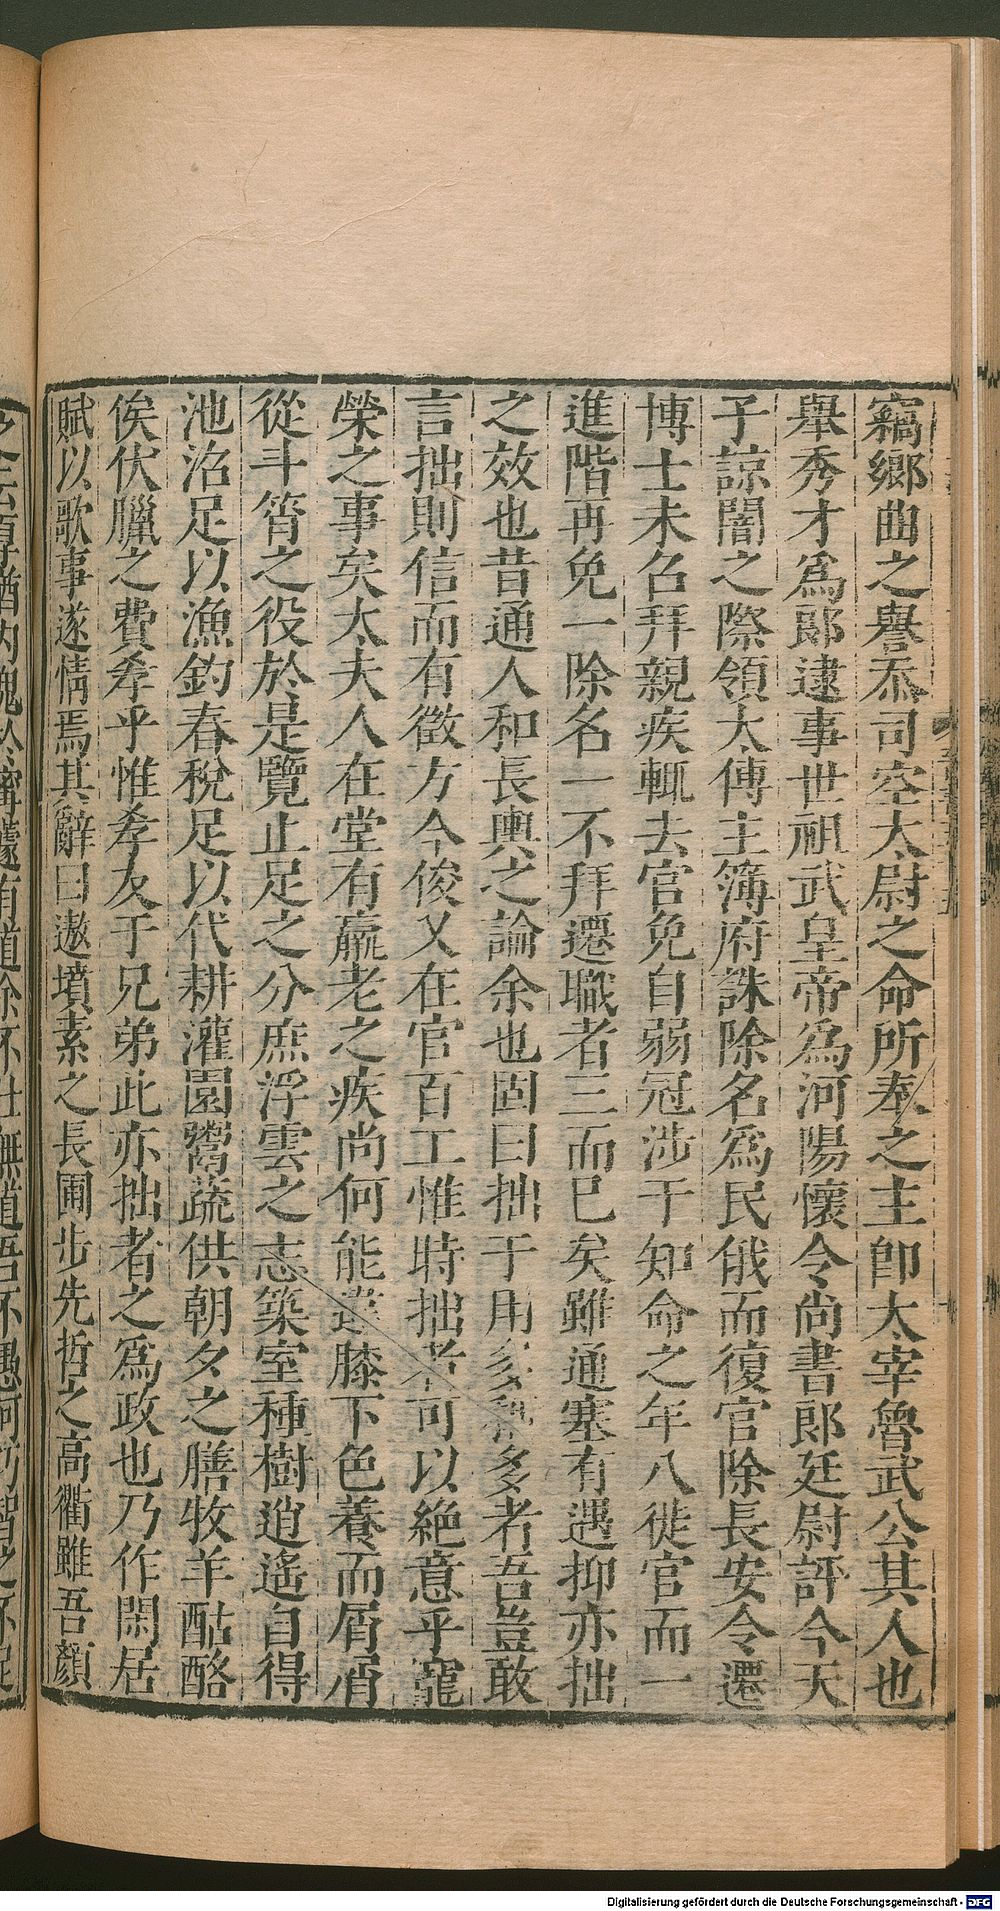 竊鄉曲之譽忝司空大尉之命所奉之主即太宰魯武公其人也
舉秀才爲郎逮事世祖武皇帝爲河陽懷令尚書郎廷尉評今天
子諒闇之際領太傅主簿府誅除名爲民俄而復官除長安令遷
博士未召拜親疾輒去官免自弱冠涉于知命之年八徙官而一
進階再免一除名一不拜遷職者三而已矣雖通塞有遇抑亦拙
之效也昔通人和長輿之論余也固曰拙于用多稱多者吾豈敢
言拙則信而有徵方今俊乂在官百工惟時拙者可以絶意乎寵
榮之事矣太夫人在堂有羸老之疾尚何能違膝下色養而屑屑
從斗筲之役於是覽止足之分庶浮雲之志築室種樹逍遙自得
池沼足以漁釣春稅足以代耕灌園鬻蔬供朝夕之膳牧羊酤酪
俟伏臘之費孝乎惟孝友于兄弟此亦拙者之爲政也乃作閑居
賦以歌事遂情焉其辭曰遨墳素之長圃步先哲之高衢雖吾顏
Digitalisierung gefördert durch die Deutsche Forschungsgemeinschaft - DFG